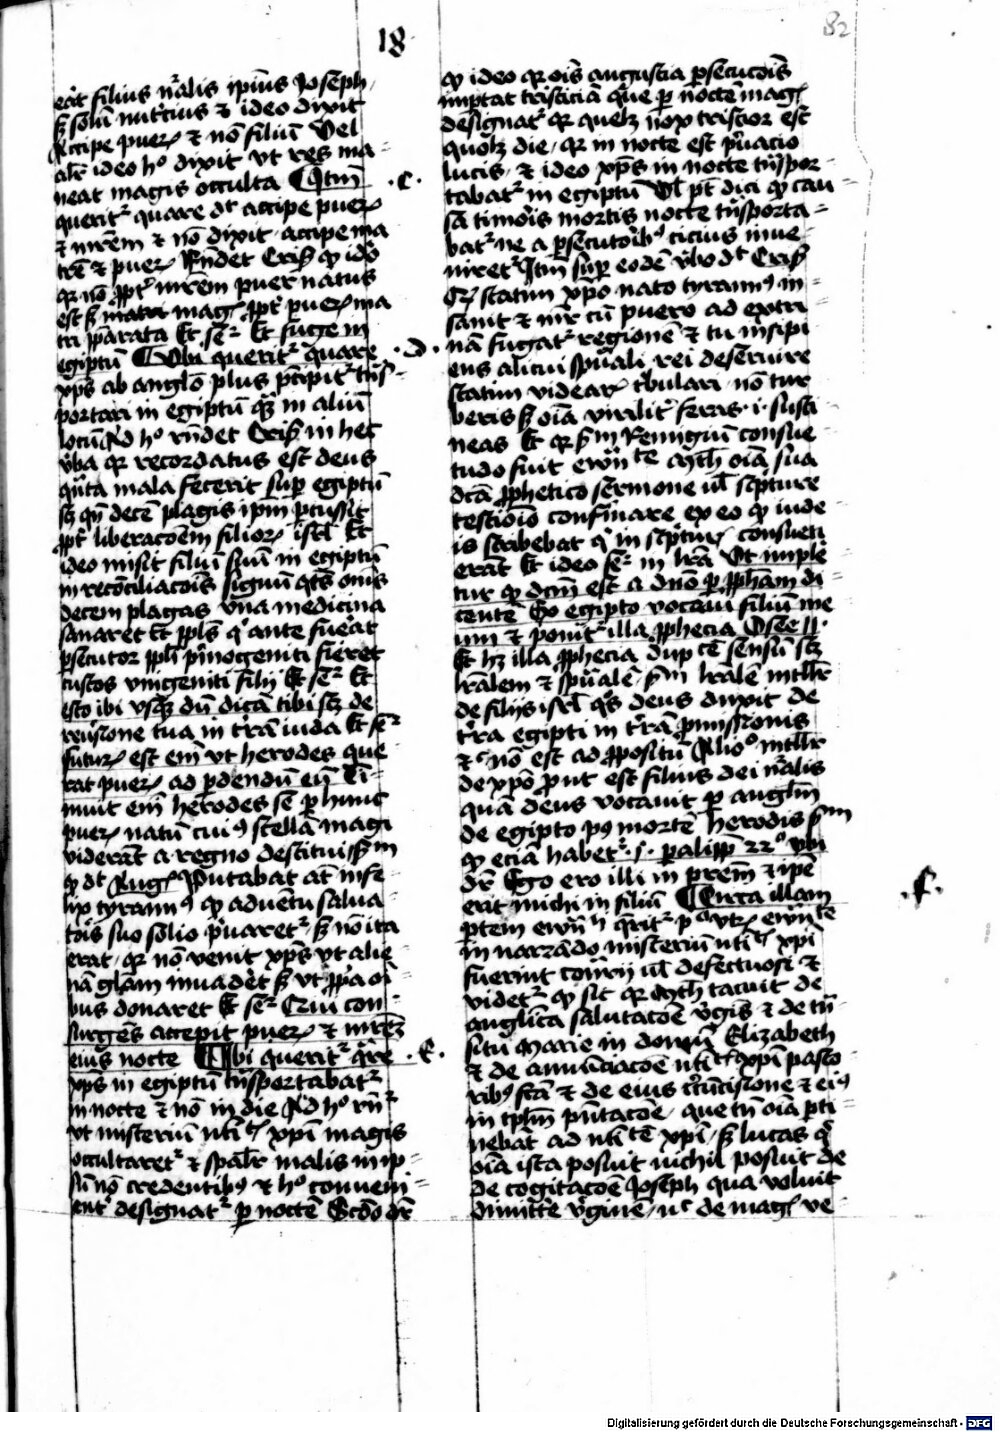 18
82
eāt filius nr̄alis ipīus Joseph
sꝫ solū nutⁱcius ⁊ ideo dixit
Accipe pueꝝ ⁊ nō filiū Vel
alr̄ ideo hͦ dixit vt res ma⸗
neat magis occulta ¶ Itm̄ .c.
querit᷑ quare dt̄ accipe pueꝝ
⁊ mr̄em ⁊ nō dixit accipe ma
trē ⁊ pueꝝ Rn̄det Cris᷑ ꝙ idō
qꝛ nō ꝓpt᷑ mr̄em puer natus
est sꝫ mag᷑ ꝓpt᷑ pueꝝ ma
tri ꝑparata Et se᷑ Et fuge in
egiptū ¶ Vbi querit᷑ quare .d.
xp̄s ab anglō plus p̄cipit᷑ tn̄s⸗
portari in egiptū qᷓꝫ in aliū
locū Ad hͦ rn̄det Cris᷑ in hec
v̄ba qꝛ recordatus est deus
qn̄ta mala fecerit sup egiptū
sꝫ qn̄ decē plagis ipm̄ ꝑcussit
ꝓpt᷑ liberacoēm filioꝝ isrl̄ Et
ideo misit filiū suū in egiptū
in recōciliacoīs signū qt̄s om̄s
decem plagas vna medicina
sanaret Et ppl̄s qͥ ante fueāt
ꝑsecutor ppl̄i pⁱmogeniti fieret
custos vnigeniti filij Et se᷑ Et
esto ibi vsqꝫ dū dicā tibi sꝫ de
reuⁱsione tua in tr̄ā iuda Et se᷑
futuꝝ est em̄ vt herodes que
rat pueꝝ ad ꝑdendū eū Ti⸗
muit em̄ herodes se ꝑ hunc
pueꝝ natū cuiꝰ stellā magi
viderāt a regno destitui sm̄
ꝙ dt̄ Aug᷑ Putabat at̄ infe
lix tyrannꝰ ꝙ aduentū salua
toīs suo solio pⁱuaret᷑ sꝫ nō ita
erat qꝛ nō venit xp̄s vt alie
nā gl̄am inuadēt sꝫ vt ꝓpa oī
bus donaret Et se᷑ Qui con⸗
surgēs accepit pueꝝ ⁊ mr̄em
eius nocte ¶ Vbi querit᷑ qr̄e .e.
xp̄s in egiptū tn̄sportabat᷑
in nocte ⁊ nō in die Ad hͦ rn̄᷑
vt misteriū nti᷑ xp̄i magis
occultaret᷑ ⁊ spālr̄ malis in ip⸗
sū nō credentibꝰ ⁊ hͦ conueni⸗
ent᷑ designat᷑ ꝑ noctē Scdō dr̄
ꝙ ideo qꝛ oīs angustia ꝑsecucoīs
imptat tristiciā que ꝑ noctē mag᷑
designat᷑ qꝛ quelꝫ nox tristior est
quolꝫ die, qꝛ in nocte est pⁱuacio
lucis, ⁊ ideo xp̄s in nocte tn̄spor⸗
tabat᷑ in egiptū Vl̄ pt̄ dici ꝙ cau⸗
sā timoīs mortis nocte tn̄sporta⸗
bat᷑ ne a ꝑsecutoībꝰ cicius inue⸗
niret᷑ Itm̄ sup eodē v̄bo dt̄ Cris᷑
statim xp̄o nato tyrannꝰ in⸗
sanit ⁊ mr̄ cū puero ad extra
nā fugat᷑ regionē ⁊ tu insipi
ens alicui spūali rei deseruire
statim videaꝝ tⁱbulari nō tur
beris sꝫ oīa virilit᷑ feras .i. susti
neas Et qꝛ sm̄ Remigiū consue
tudo fuit ewn̄te Mth̄ oīa sua
dc̄ā ꝓphetico sermone ul̄ scpture
testimōio confirmare ex eo ꝙ iude
is scribebat qͥ in scptuꝝ consueti
erāt Et ideo se᷑ in lr̄a Vt imple
tur ꝙ dcm̄ est a dn̄o ꝑ ꝓphm̄ di
centē Ex egipto vocaui filiū me
um ⁊ ponit᷑ illa ꝓphecia Osee 11.
Et hꝫ illa ꝓphecia dupcē sensū sꝫ
lr̄alem ⁊ spūalē sm̄ lr̄alē intllr̄
de filijs isrl̄ qͦs deus duxit de
tr̄a egipti in tr̄ā ꝓmissionis
⁊ nō est ad ꝓpositū Alioͦ intllr̄
de xp̄o ꝓut est filius dei nr̄alis
quā deus vocauit ꝑ anglm̄
de egipto pꝰ mortē herodis sm̄
ꝙ eciā habet᷑ .1. ꝑalipp̄ 22ͦ vbi
dr̄ Ego ero illi in pr̄em ⁊ ipē
erit michi in filiū ¶ Circa illam .f.
ptem ewn̄h qr̄it᷑ pͦ vtꝝ ewn̄te
in narrādo misteriū nti᷑ xp̄i
fuerint cōtrⁱij ul̄ defectuosi ⁊
videt᷑ ꝙ sit qꝛ Mth̄ tacuit de
anglica salutacoē v̄gīs ⁊ de tn̄
situ Marie in domū Elizabeth
⁊ de annūciacoē nti᷑ xp̄i pasto
ribꝰ fcā ⁊ de eius cⁱcūcisione ⁊ eiꝰ
in tplm̄ pn̄tacoē, que tn̄ oīa ꝑti
nebāt ad nti᷑tē xp̄i, sꝫ lucas qͥ
oīa ista posuit nichil posuit de
de cogitacoē Joseph qua voluit
dimitte᷑ v̄ginē, nͨ de mag᷑ ve
Digitalisierung gefördert durch die Deutsche Forschungsgemeinschaft - DFG